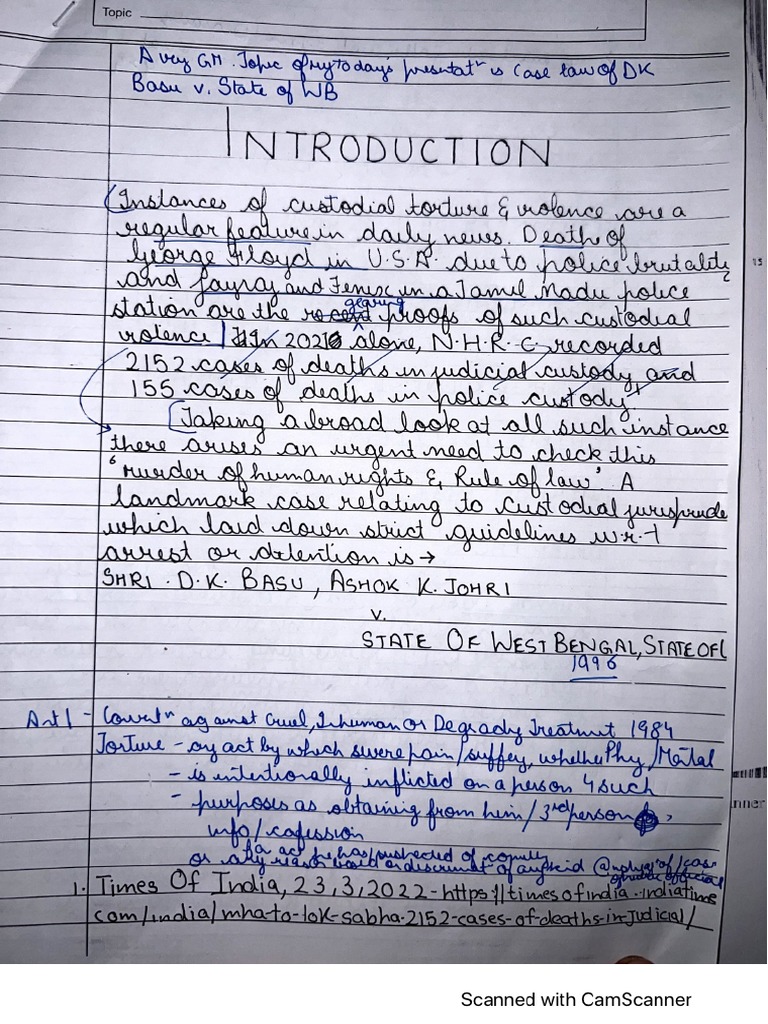 Topic
A very GM. Topic of my today's presentatn is Case law of DK
Basu v. State of WB
INTRODUCTION
(Instances of custodial torture & violence are a
regular feature in daily news. Death of
George Floyd in U.S.A. due to police brutality
and Jayraj and Fenix in a Tamil Nadu police
station are the gearing proofs of such custodial
violence In 2021 alone, N.H.R.C recorded
2152 cases of deaths in judicial custody and
155 cases of deaths in police custody
Taking a broad look at all such instance
there arises an urgent need to check this
'murder of human rights & Rule of law'. A
landmark case relating to custodial jurisprude
which laid down strict guidelines w.r.t
arrest or detention is →
SHRI. D.K. BASU, ASHOK K. JOHRI
v.
STATE OF WEST BENGAL, STATE OF
1996
Art 1 - Convertn against Cruel, Inhuman or Degrady Treatmnt 1984
Torture - any act by which severe pain/suffey, whether Phy/Mental
- is intentionally inflicted on a person 4 such
- purposes as obtaining from him/3rd person,
info/cofession
for act he has/suspected of
or any reason
1. Times Of India, 23,3,2022-https://timesofindia.indiatime
com/india/mha-to-lok-sabha-2152-cases-of-deaths-in-judicial/
Scanned with CamScanner